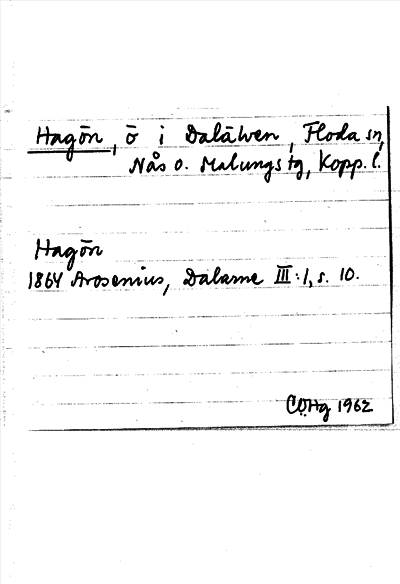 Hagön, ö i Dalälven, Floda sn,
Nås o. Malungs tg, Kopp. l.
Hagön
1864 Arosenius, Dalarne III:1, s. 10.
COHg 1962